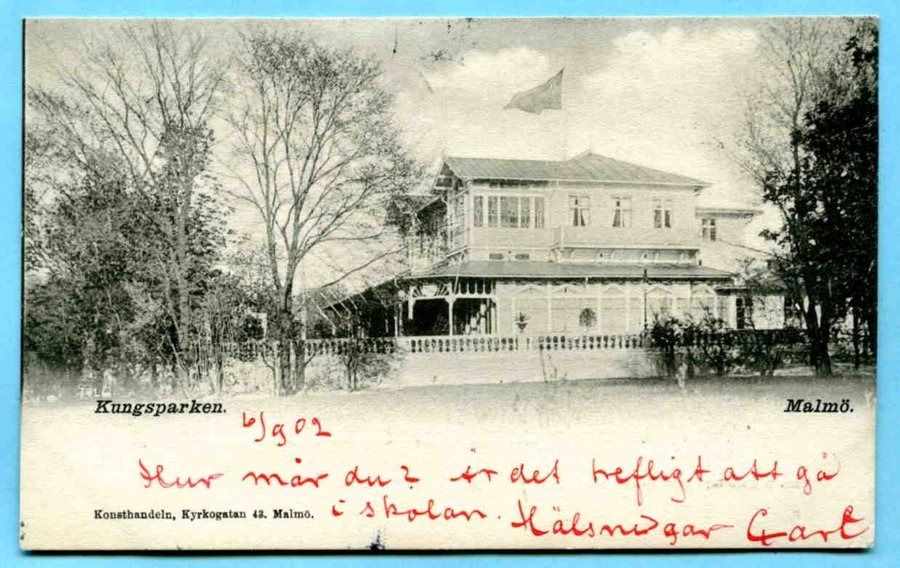 Kungsparken. Malmö.
6/9 02
Hur mår du? är det trefligt att gå
Konsthandeln, Kyrkogatan 43. Malmö. i skolan. Hälsningar